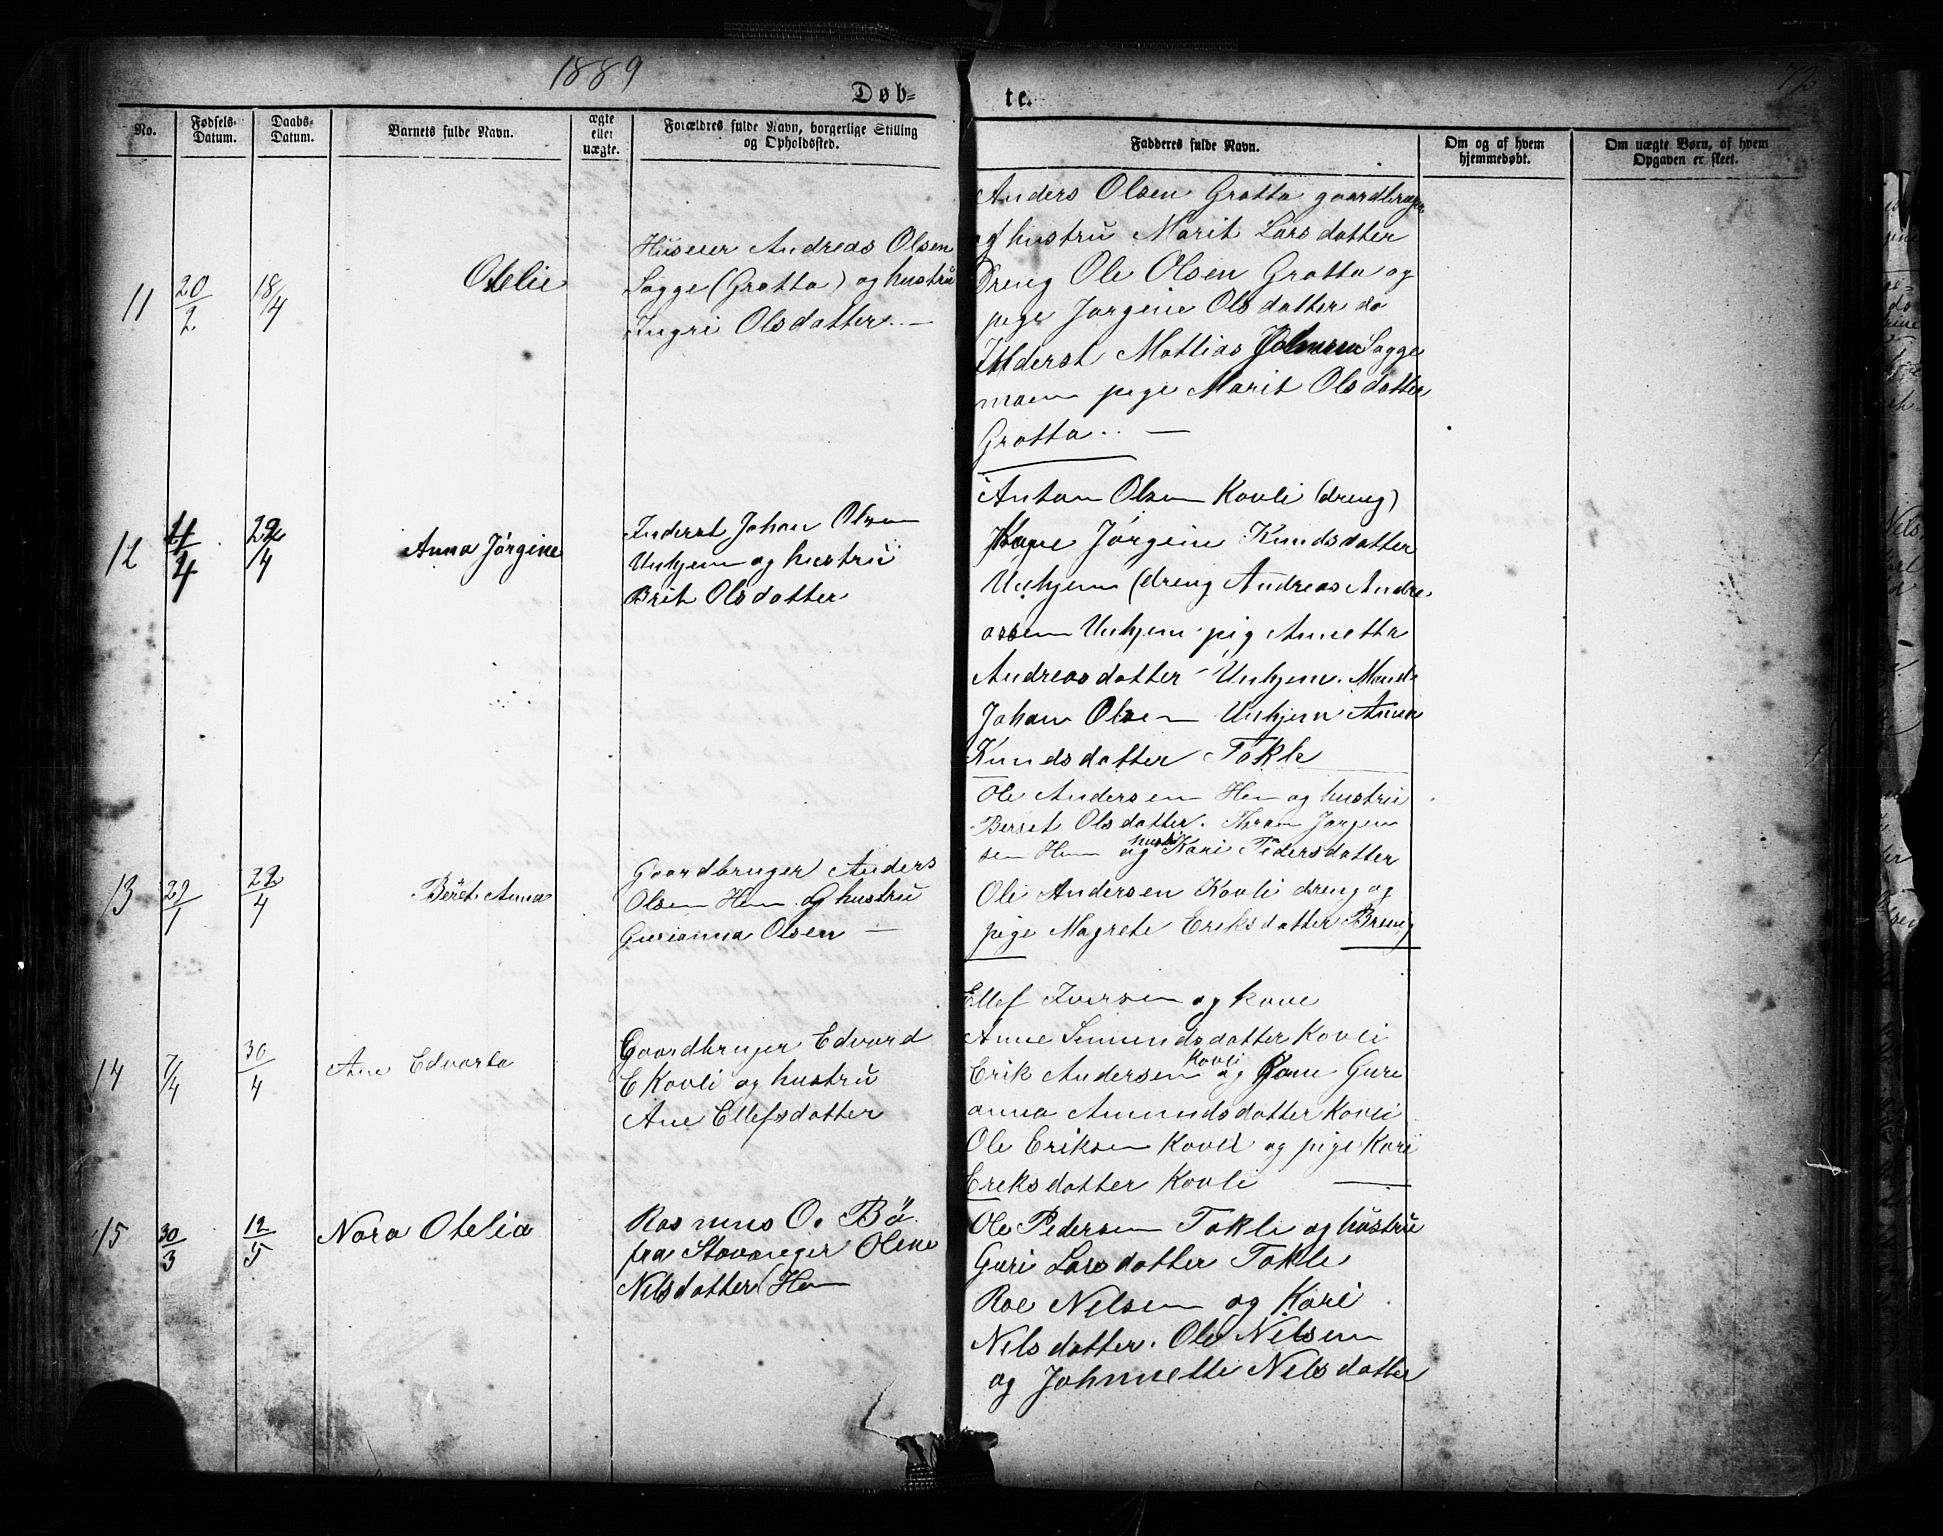 1889
Døb-
te.
No.
Fødsels-
Datum.
Daabs-
Datum.
Barnets fulde Navn.
ægte
eller
uægte.
Forældres fulde Navn, borgerlige Stilling
og Opholdssted.
Fadderes fulde Navn.
Om og af hvem
hjemmedøbt.
Om uægte Børn, af hvem
Opgaven er skeet.
11
20/2
18/4
Otelie
Huseier Andreas Olsen
Sogge (Grotta) og hustru
Ingri Olsdatter. —
Anders Olsen Grotta gaardbruger
og hustru Marit Larsdatter
Dreng Ole Olsen Grotta og
pige Jørgine Olsdatter do
Inderst Mattias Johnsen Sogge
moen pige Marit Olsdatter
Grotta. —
12
4/4
22/4
Anna Jørgine
Inderst Johan Olsen
Unhjem og hustru
Brit Olsdatter
Anton Olsen Kovli (dreng)
Jørgine Knudsdatter
Unhjem (dreng Andreas Andre
assen Unhjem pig Annetta
Andreasdatter Unhjem. Mand.
Johan Olsen Unhjem Anna
Knudsdatter Tokle
13
22/1
22/4
Beret Anna
Gaardbruger Anders
Olsen Hem og hustru
Gurianna Olsen —
Ole Andersen Hem og hustru
Berret Olsdatter. Jørgen
sen Hem og hustru Kari Pedersdatter
Ole Andersen Kovli dreng og
pige Magrete Eriksdatter
14
7/4
30/4
Ane Edvarta
Gaardbruger Edvard
E Kovli og hustru
Ane Ellefsdatter
Ellef Iversen og kone
Anne Simundsdatter Kovli
Erik Andersen Kovli og Kone Guri
anna Amundsdatter Kovli
Ole Eriksen Kovli og pige Kari
Ereksdatter Kovli —
15
30/3
12/5
Nora Otelia
Rasmus O. Bø
fra Stavanger Oline
Nelsdatter (Hem
Ole Pedersen Tokle og hustru
Guri Larsdatter Tokle
Roe Nelsen og Kari
Nelsdatter. Ole Nelsen
og Johnnette Nelsdatter